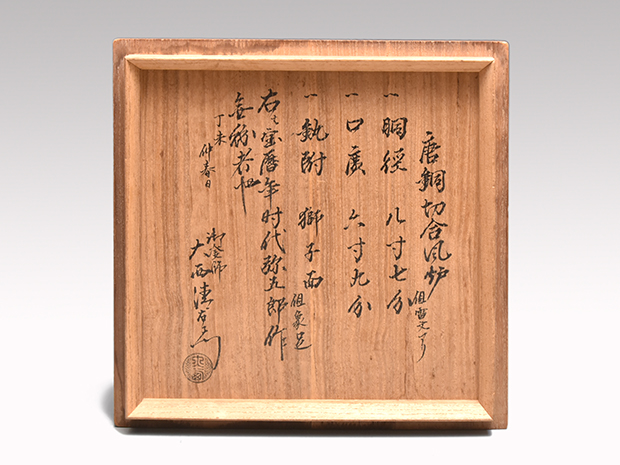 唐銅切合風炉
但雷文アリ
一 胴経 八寸七分
一 口廣 六寸九分
一 釻附 獅子面
但象足
右ハ宝暦年时代弥五郎作
無称者也
丁未 仲春日
御釜師
大西清右衛門